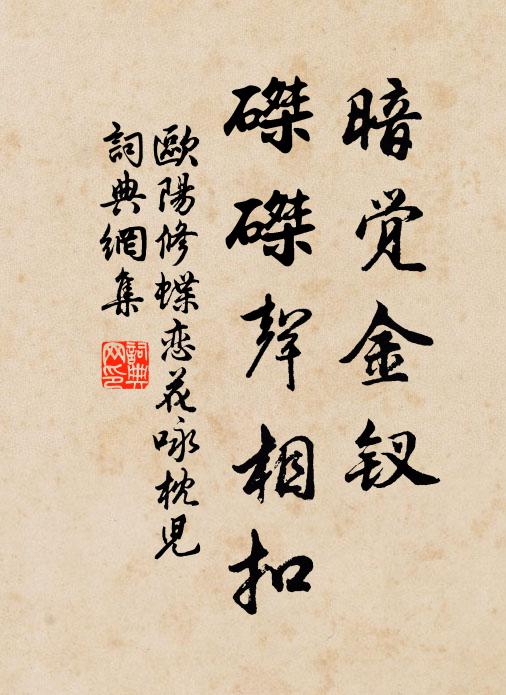 暗觉金钗
磔磔聲相扣
歐陽修蝶恋花咏枕兒
詞典網集
詞典網印